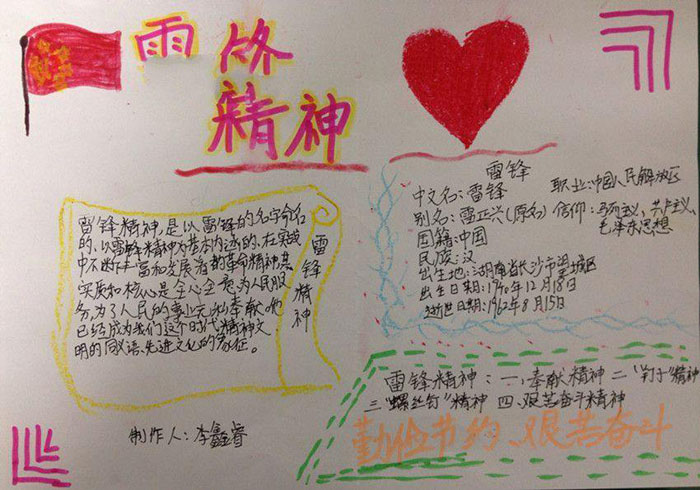 雷锋
精神
雷锋精神,是以雷锋的名字命名
的、以雷锋精神为基本内涵的、在实践
中不断丰富和发展着的革命精神,其
实质和核心是全心全意为人民服
务,为了人民的事业无私奉献,他
已经成为我们这个时代精神文
明的同义语、先进文化的象征。
雷锋精神
制作人:李鑫睿
雷锋
中文名:雷锋 职业:中国人民解放区
别名:雷正兴(原名) 信仰:马列主义,共产主义,
毛泽东思想
国籍:中国
民族:汉
出生地:湖南省长沙市望城区
出生日期:1940年12月18日
逝世日期:1962年8月15日
雷锋精神:一、奉献精神 二“钉子”精神
三“螺丝钉”精神 四、艰苦奋斗精神
勤俭节约、艰苦奋斗